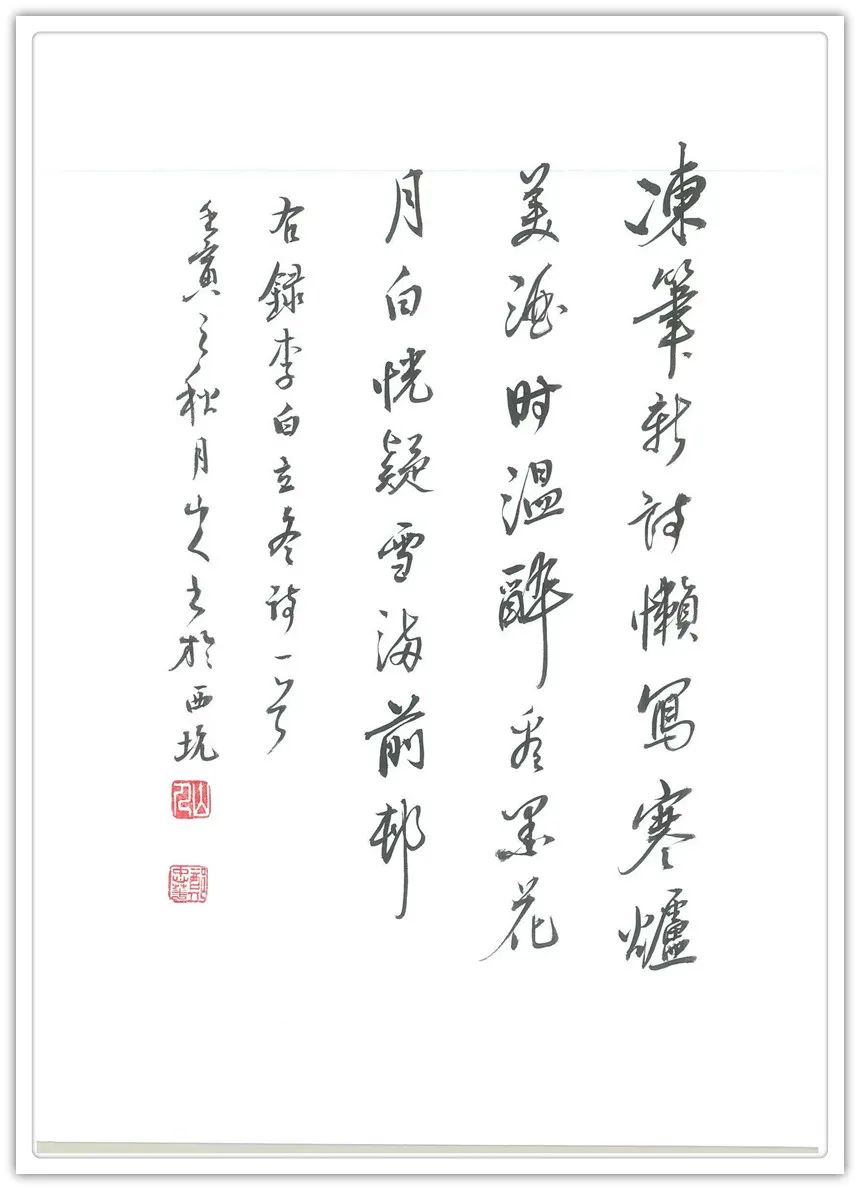 凍筆新詩懶寫寒爐
美酒时温醉看墨花
月白恍疑雪满前邨
右録李白立冬詩一首
壬寅之秋月山人书於西坑